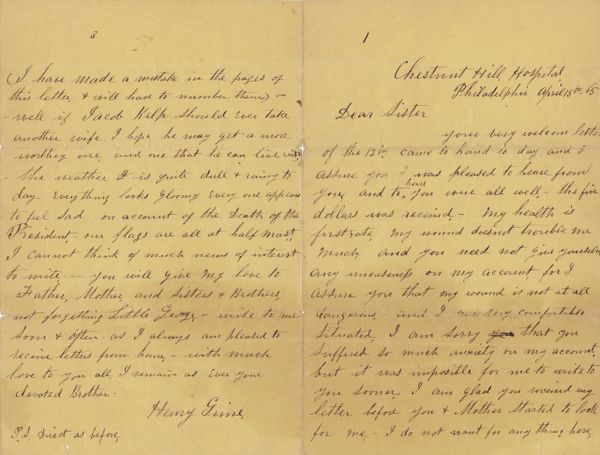 3
(I have made a mistake in the pages of
this letter & will have to number them) -
- well if Jacob Kelp should Ever take
another wife I hope he may get a more
worthy one, and one that he can live with
- the weather It is quite dull & rainy to
day Everything looks gloomy Every one appears
to feel sad on account of the Death of the
President, our flags are all at half Mast,
I cannot think of much news of interest
to write, -- you will give My love to
Father, Mother and Sisters & Brothers,
not forgetting Little - write to me
soon & often as I always am pleased to
receive letters from home, - with much
love to you all, I remain as Ever your
devoted Brother -
Henry
P.S. Direct as before,
1
Chestnut Hill Hospital,
Philadelphia April 15th 65
Dear Sister
your very welcom letter
of the 12th came to hand to day and I
assure you I was pleased to heare from
you, and to heare you were all well, - the five
dollars was received - My health is
firstrate, My wound doesnt trouble me
Much, and you need not give yourself
any uneasness on my account for I
assure you that my wound is not at all
dangerous, and I am very comfortibly
situated, I am sorry that you
suffered so much anxiety on my account,
but it was imposible for me to write to
you sooner, I am glad you received my
letter before you & Mother started to look
for me - I do not want for any thing here,